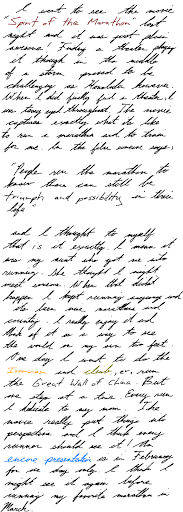 I went to see the movie
"Spirit of the Marathon" last
night and it was just plain
awesome! Finding a theater playing
it though in the middle
of a storm proved to be
challenging as Honolulu however.
When I did finally find a theater, I
was teary eyed throughout. The movie
captures exactly what it's like
to run a marathon and to train
for one. In the film someone says,
"People run the marathon to
know there can still be
triumph and possibility in their
life"
and I thought to myself
that is it exactly. I mean it
was my aunt who got me into
running. She thought I might
meet someone. When that didn't
happen I kept running anyway and
it's been one marathon and
counting. I really enjoy it and
think of it as a way to see
the world on my own two feet.
One day I want to do the
Ironman and climb, er, run
the Great Wall of China. But
one step at a time. Every run
I dedicate to my mom. The
movie really put things into
perspective and I think every
runner should see it! The
encore presentation is in February
for one day only. I think I
might see it again before
running my favorite marathon in
March.